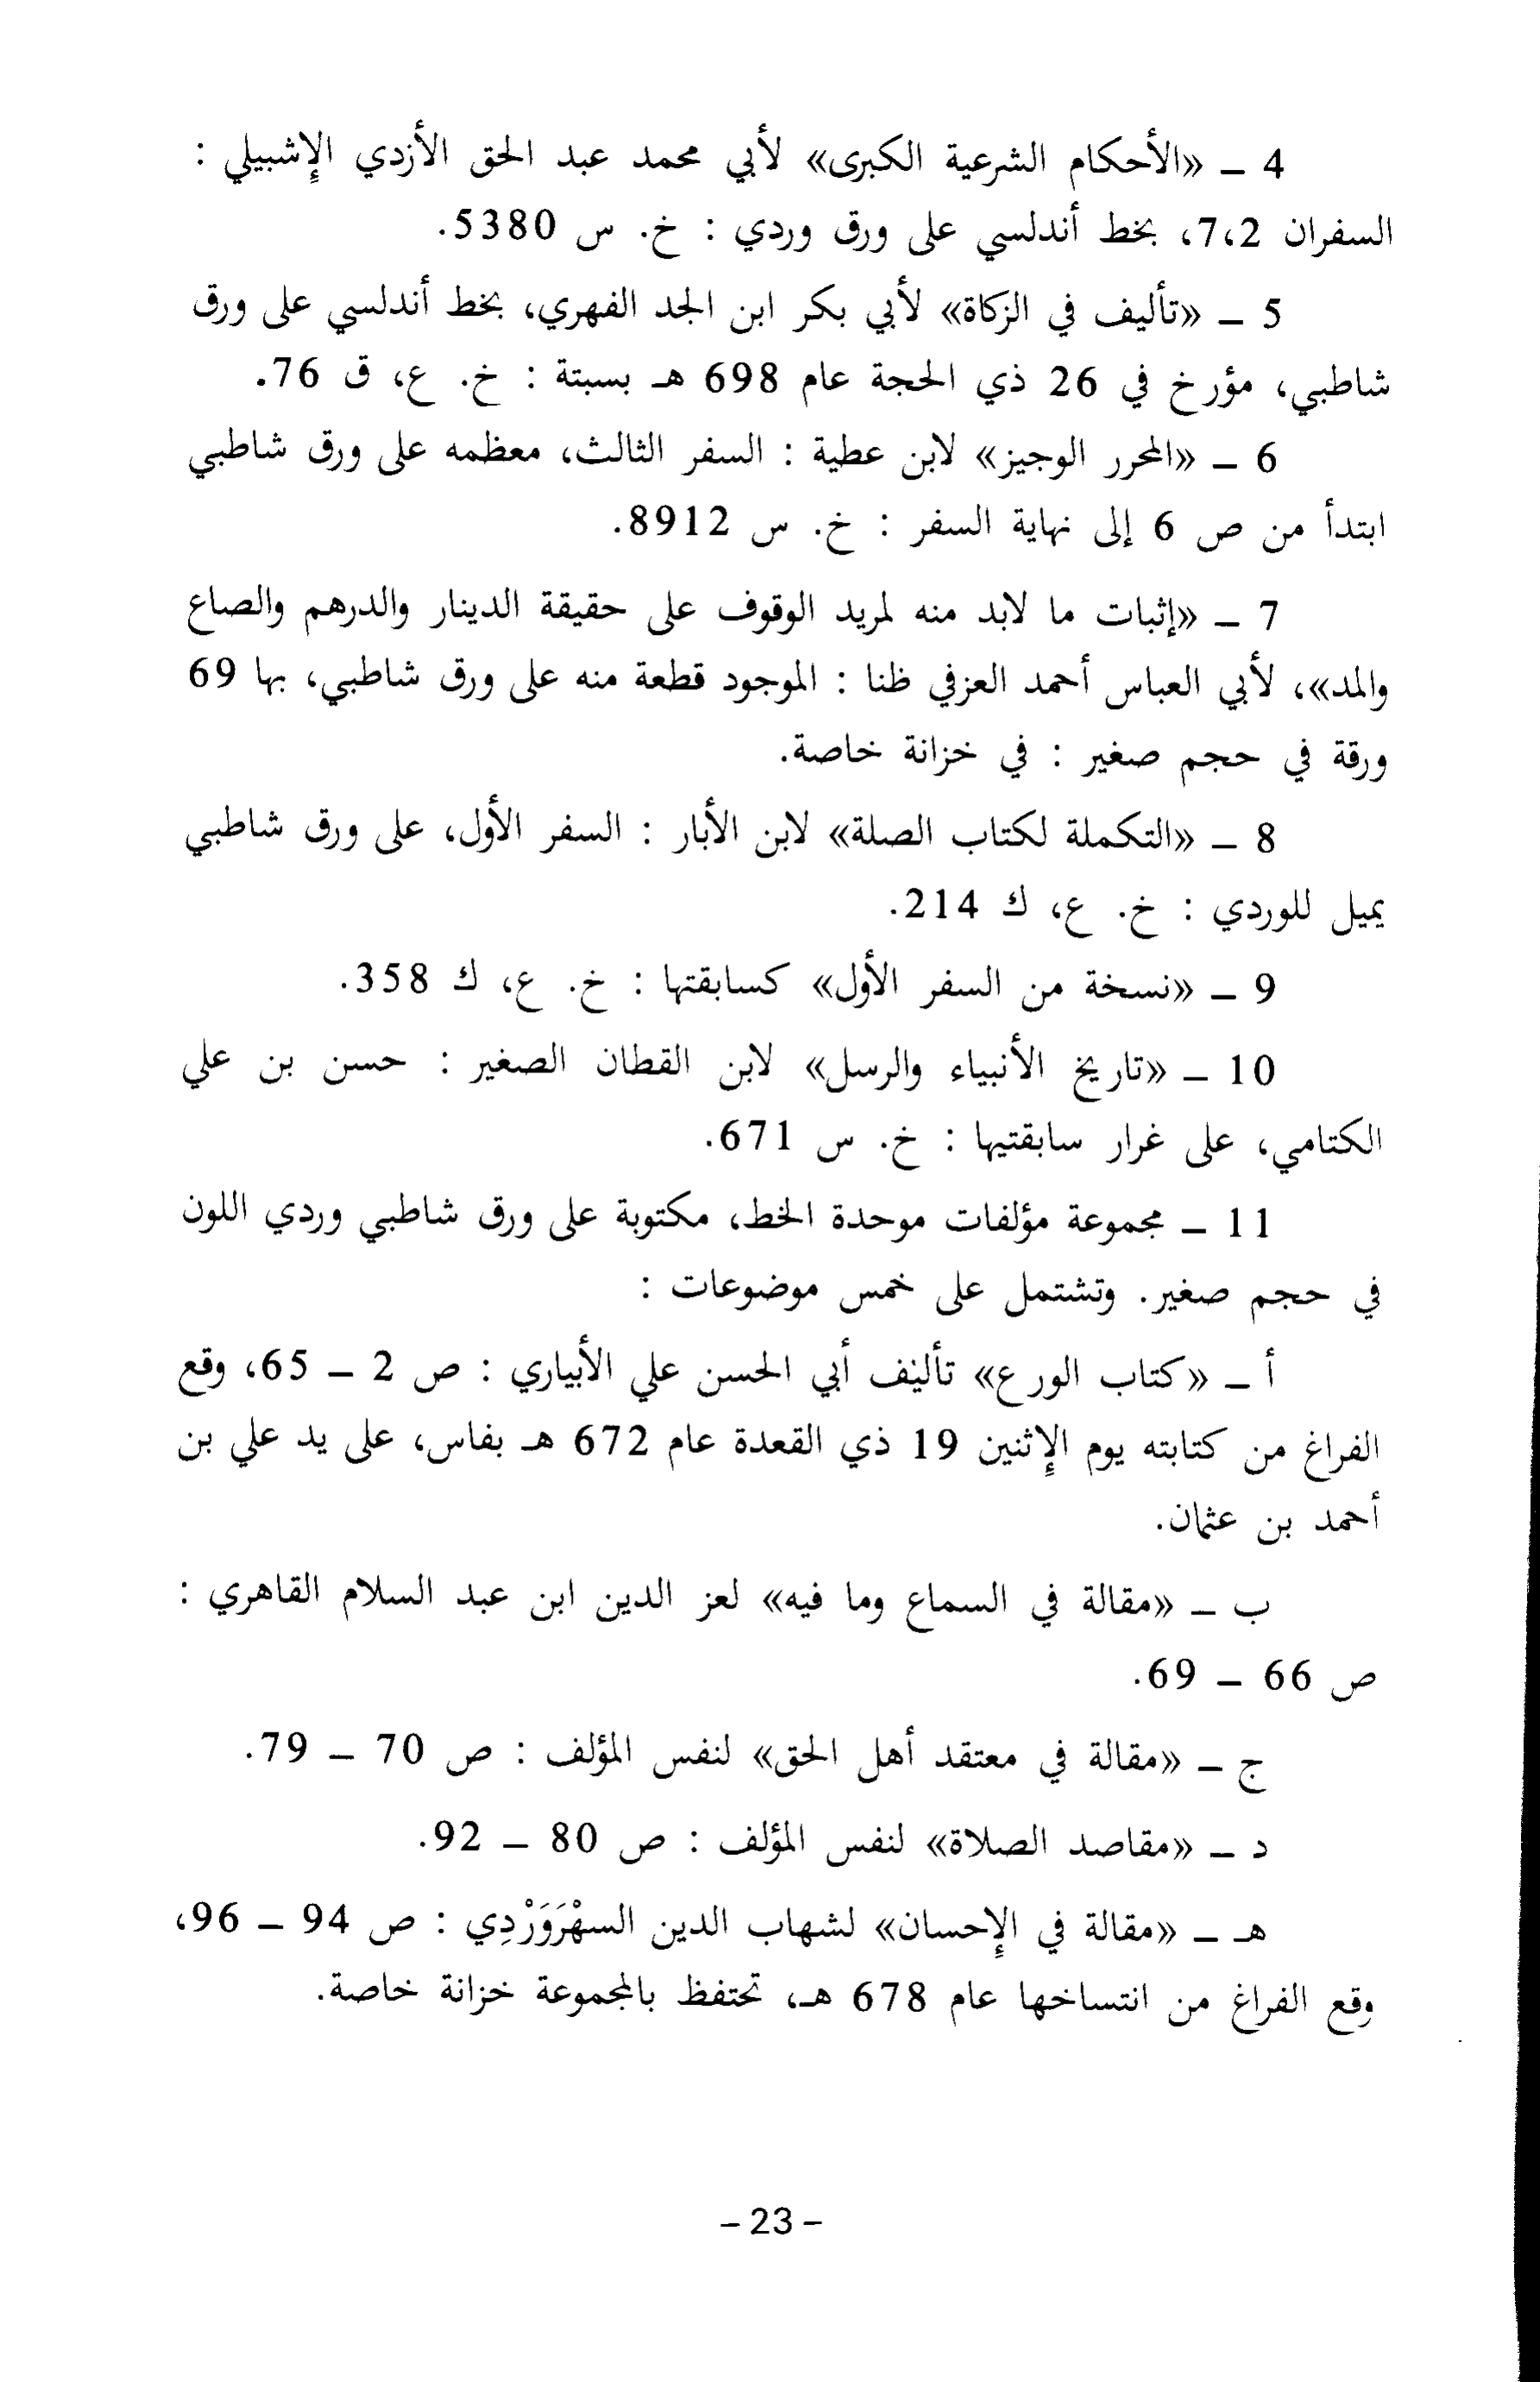 4 ــ «الأحكام الشرعية الكبرى» لأبي محمد عبد الحق الأزدي الإشبيلي :
السفران 7،2، بخط أندلسي على ورق وردي : خ. س 5380.
5 ــ «تأليف في الزكاة» لأبي بكر ابن الجد الفهري، بخط أندلسي على ورق
شاطبي، مؤرخ في 26 ذي الحجة عام 698 هـ بسبتة : خ. ع، ق 76.
6 ــ «المحرر الوجيز» لابن عطية : السفر الثالث، معظمه على ورق شاطبي
ابتدأ من ص 6 إلى نهاية السفر : خ. س 8912.
7 ــ «إثبات ما لابد منه لمريد الوقوف على حقيقة الدينار والدرهم والصاع
والمد»، لأبي العباس أحمد العزفي ظنا : الموجود قطعة منه على ورق شاطبي، بها 69
ورقة في حجم صغير : في خزانة خاصة.
8 ــ «التكملة لكتاب الصلة» لابن الأبار : السفر الأول، على ورق شاطبي
يميل للوردي : خ. ع، ك 214.
9 ــ «نسخة من السفر الأول» كسابقتها : خ. ع، ك 358.
10 ــ «تاريخ الأنبياء والرسل» لابن القطان الصغير : حسن بن علي
الكتامي، على غرار سابقتيها : خ. س 671.
11 ــ مجموعة مؤلفات موحدة الخط، مكتوبة على ورق شاطبي وردي اللون
في حجم صغير. وتشتمل على خمس موضوعات :
أ ــ «كتاب الورع» تأليف أبي الحسن علي الأبياري : ص 2 ــ 65، وقع
الفراغ من كتابته يوم الإثنين 19 ذي القعدة عام 672 هـ بفاس، على يد علي بن
أحمد بن عثمان.
ب ــ «مقالة في السماع وما فيه» لعز الدين ابن عبد السلام القاهري :
ص 66 ــ 69.
ج ــ «مقالة في معتقد أهل الحق» لنفس المؤلف : ص 70 ــ 79.
د ــ «مقاصد الصلاة» لنفس المؤلف : ص 80 ــ 92.
هـ ــ «مقالة في الإحسان» لشهاب الدين السهْرَوَرْدِي : ص 94 ــ 96،
وقع الفراغ من انتساخها عام 678 هـ، تحتفظ بالمجموعة خزانة خاصة.
- 23 -